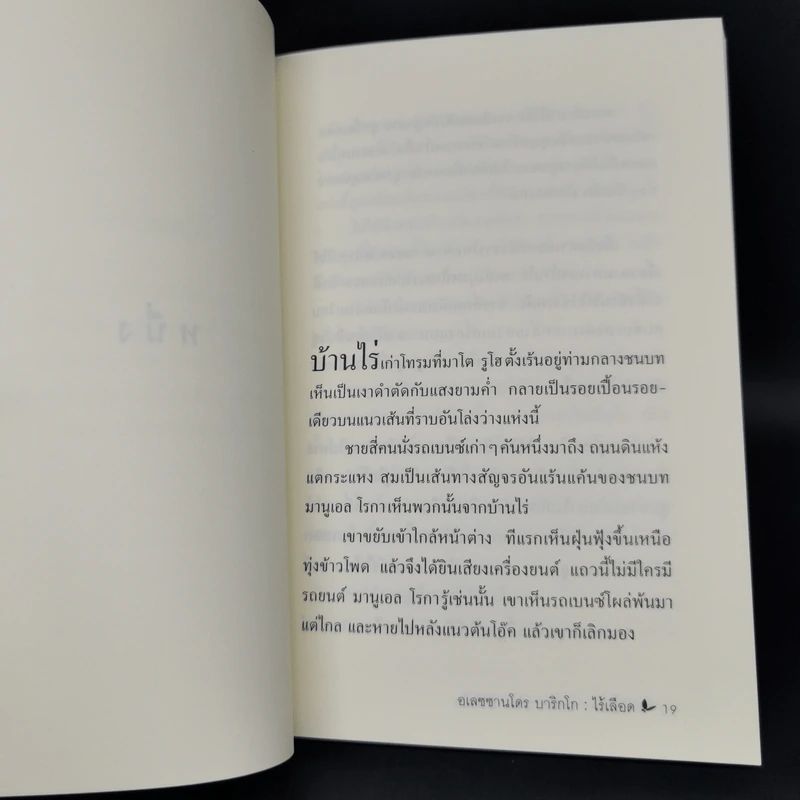 บ้านไร่เก่าโทรมที่มาโต รูโฮตั้งเร้นอยู่ท่ามกลางชนบท
เห็นเป็นเงาดำตัดกับแสงยามค่ำ กลายเป็นรอยเปื้อนรอย-
เดียวบนแนวเส้นที่ราบอันโล่งว่างแห่งนี้
ชายสี่คนนั่งรถเบนซ์เก่าๆคันหนึ่งมาถึง ถนนดินแห้ง
แตกระแหง สมเป็นเส้นทางสัญจรอันแร้นแค้นของชนบท
มานูเอล โรกาเห็นพวกนั้นจากบ้านไร่
เขาขยับเข้าใกล้หน้าต่าง ทีแรกเห็นฝุ่นฟุ้งขึ้นเหนือ
ทุ่งข้าวโพด แล้วจึงได้ยินเสียงเครื่องยนต์ แถวนี้ไม่มีใครมี
รถยนต์ มานูเอล โรการู้เช่นนั้น เขาเห็นรถเบนซ์โผล่พ้นมา
แต่ไกล และหายไปหลังแนวต้นโอ๊ค แล้วเขาก็เลิกมอง
อเลซซานโดร บาริกโก : ไร้เลือด 19